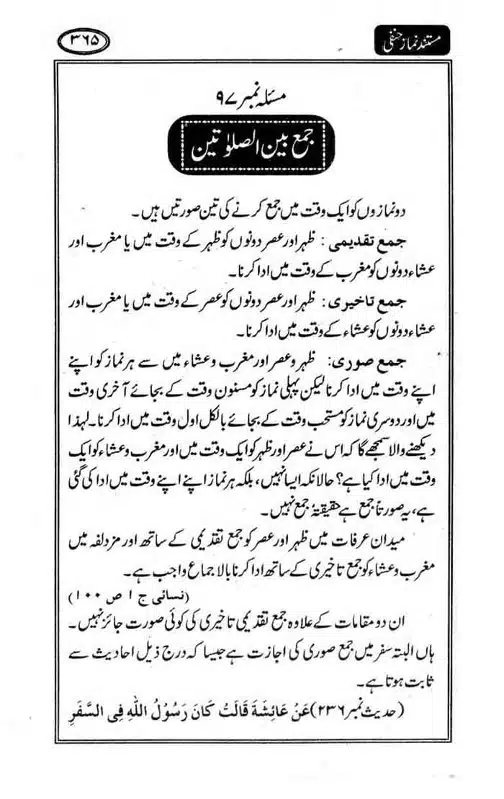 مستند نماز حنفی
۳۶۵
مسئلہ نمبر ۹۷
جمع بین الصلوٰتین
دو نمازوں کو ایک وقت میں جمع کرنے کی تین صورتیں ہیں۔
جمع تقدیمی: ظہر اور عصر دونوں کو ظہر کے وقت میں یا مغرب اور
عشاء دونوں کو مغرب کے وقت میں ادا کرنا۔
جمع تاخیری: ظہر اور عصر دونوں کو عصر کے وقت میں یا مغرب اور
عشاء دونوں کو عشاء کے وقت میں ادا کرنا۔
جمع صوری: ظہر و عصر اور مغرب و عشاء میں سے ہر نماز کو اپنے
اپنے وقت میں ادا کرنا لیکن پہلی نماز کو مسنون وقت کے بجائے آخری وقت
میں اور دوسری نماز کو مستحب وقت کے بجائے بالکل اول وقت میں ادا کرنا۔ لہذا
دیکھنے والا سمجھے گا کہ اس نے عصر اور ظہر کو ایک وقت میں اور مغرب و عشاء کو ایک
وقت میں ادا کیا ہے؟ حالانکہ ایسا نہیں، بلکہ ہر نماز اپنے اپنے وقت میں ادا کی گئی
ہے، یہ صورتاً جمع ہے حقیقۃً جمع نہیں۔
میدان عرفات میں ظہر اور عصر کو جمع تقدیمی کے ساتھ اور مزدلفہ میں
مغرب و عشاء کو جمع تاخیری کے ساتھ ادا کرنا بالاجماع واجب ہے۔
(نسائی ج ۱ ص ۱۰۰)
ان دو مقامات کے علاوہ جمع تقدیمی تاخیری کی کوئی صورت جائز نہیں۔
ہاں البتہ سفر میں جمع صوری کی اجازت ہے جیسا کہ درج ذیل احادیث سے
ثابت ہوتا ہے۔
(حدیث نمبر ۲۳۶) عَنْ عَائِشَةَ قَالَتْ كَانَ رَسُوْلُ اللهِ فِي السَّفَرِ